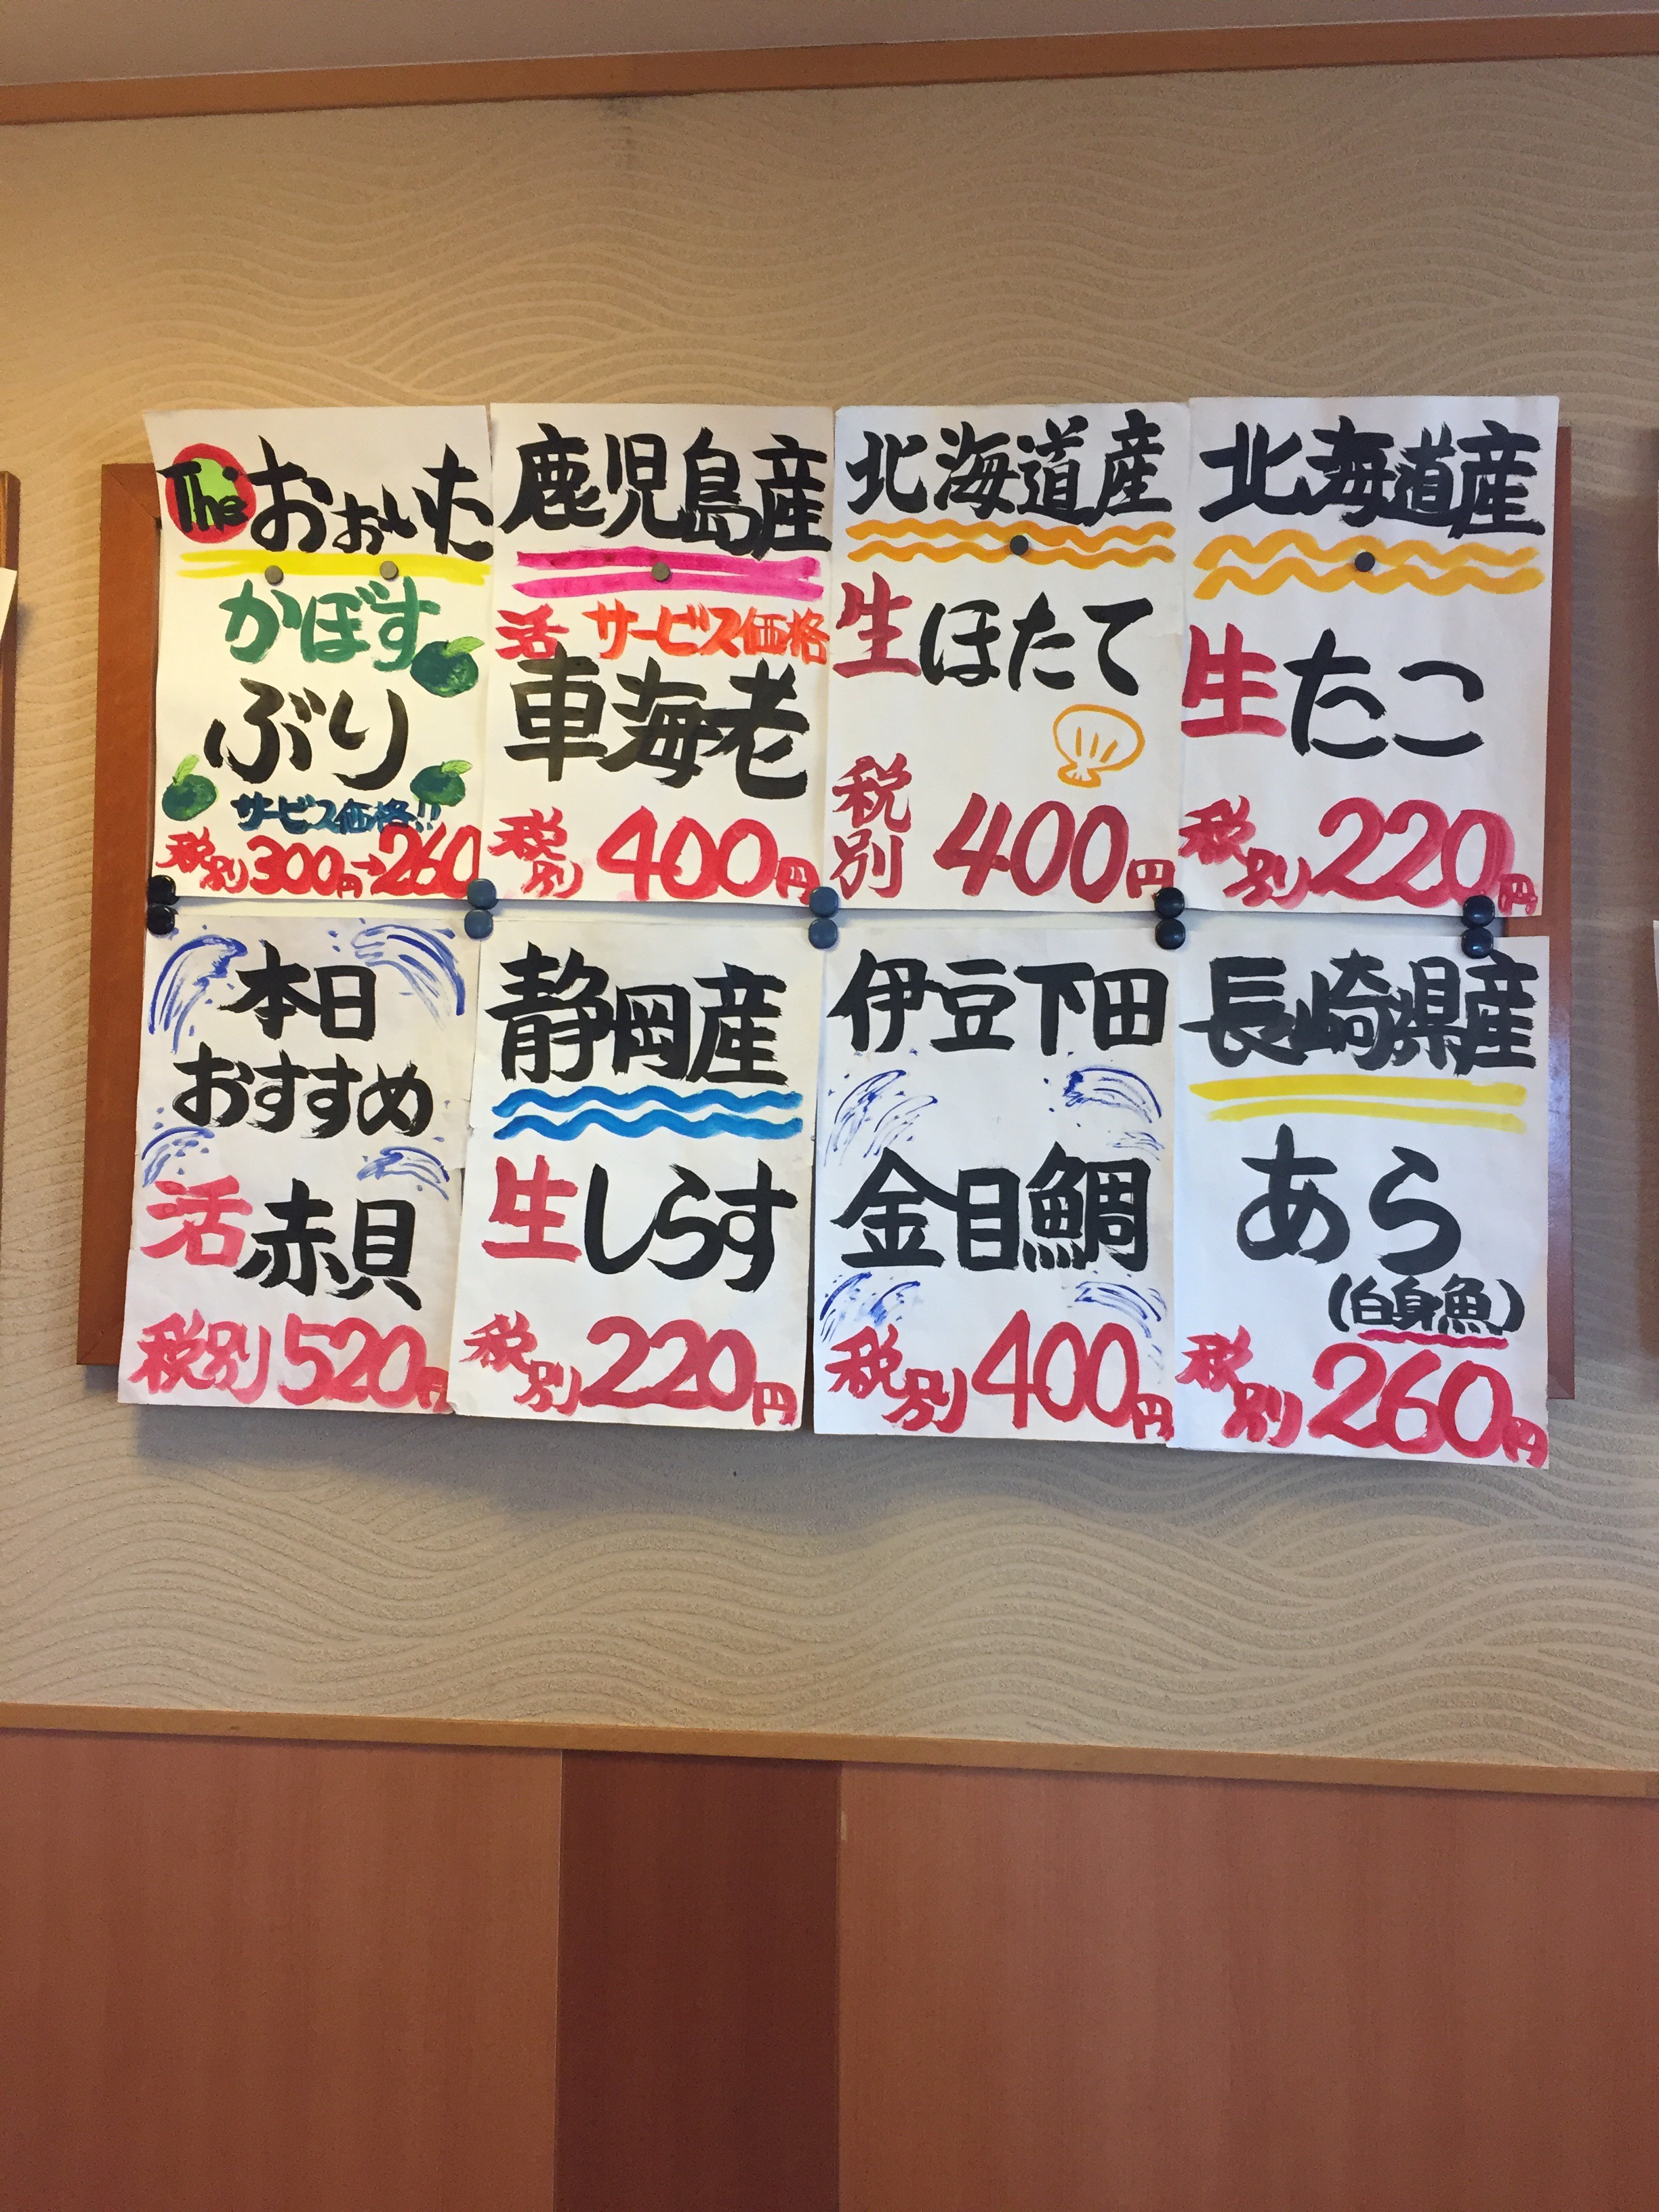 The おぉいた
かぼす
ぶり
サービス価格!!
税別300円→260
鹿児島産
活 サービス価格
車海老
税別 400円
北海道産
生ほたて
税別 400円
北海道産
生たこ
税別 220円
本日
おすすめ
活赤貝
税別 520円
静岡産
生しらす
税別 220円
伊豆下田
金目鯛
税別 400円
長崎県産
あら
(白身魚)
税別 260円